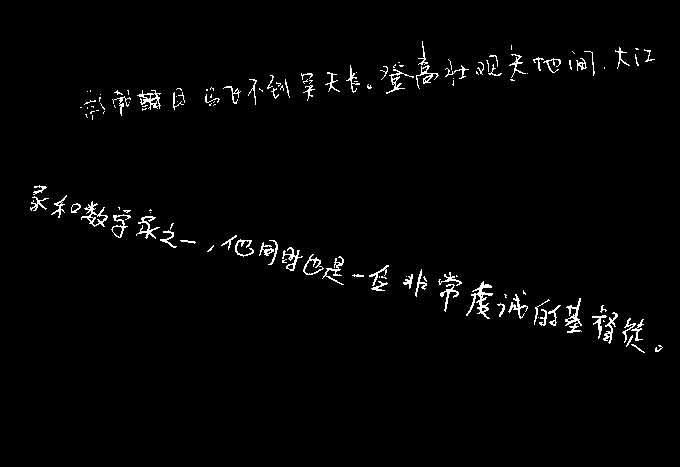 影带朝日鸟飞不到吴天长。登高壮观天地间,大江
家和数学家之一,他同时也是一位非常虔诚的基督徒。